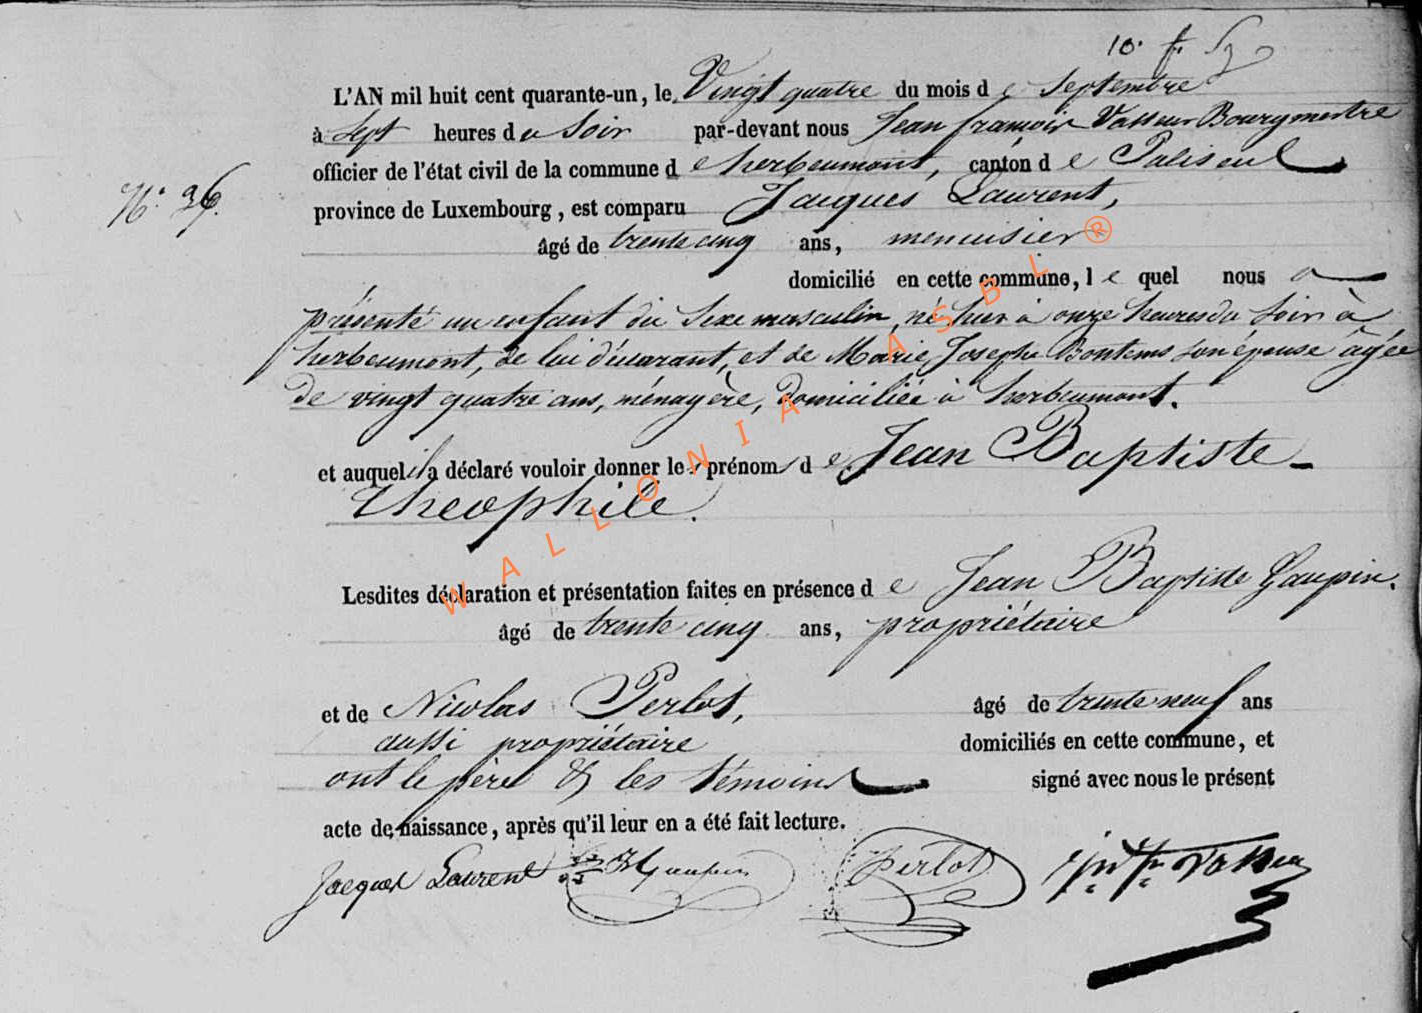 10. f.
L'AN mil huit cent quarante-un, le Vingt quatre du mois de Septembre
à Sept heures du Soir par-devant nous Jean françois Vasseur Bourgmestre
officier de l'état civil de la commune de herbeumont, canton de Paliseul
N° 36. province de Luxembourg, est comparu Jacques Laurent,
âgé de trente cinq ans, menuisier
domicilié en cette commune, le quel nous a
présenté un enfant du Sexe masculin, né hier à onze heures du Soir à
herbeumont, de lui déclarant, et de Marie Josephe Bontems son épouse âgée
de vingt quatre ans, ménagère, domiciliée à herbeumont.
et auquel il a déclaré vouloir donner les prénoms de Jean Baptiste
théophile.
Lesdites déclaration et présentation faites en présence de Jean Baptiste Gaupin.
âgé de trente cinq ans, propriétaire
et de Nicolas Perlot, âgé de trente neuf ans
aussi propriétaire domiciliés en cette commune, et
ont le père & les témoins signé avec nous le présent
acte de naissance, après qu'il leur en a été fait lecture.
Jacques Laurent Gaupin Perlot
WALLONIA ASBL ®